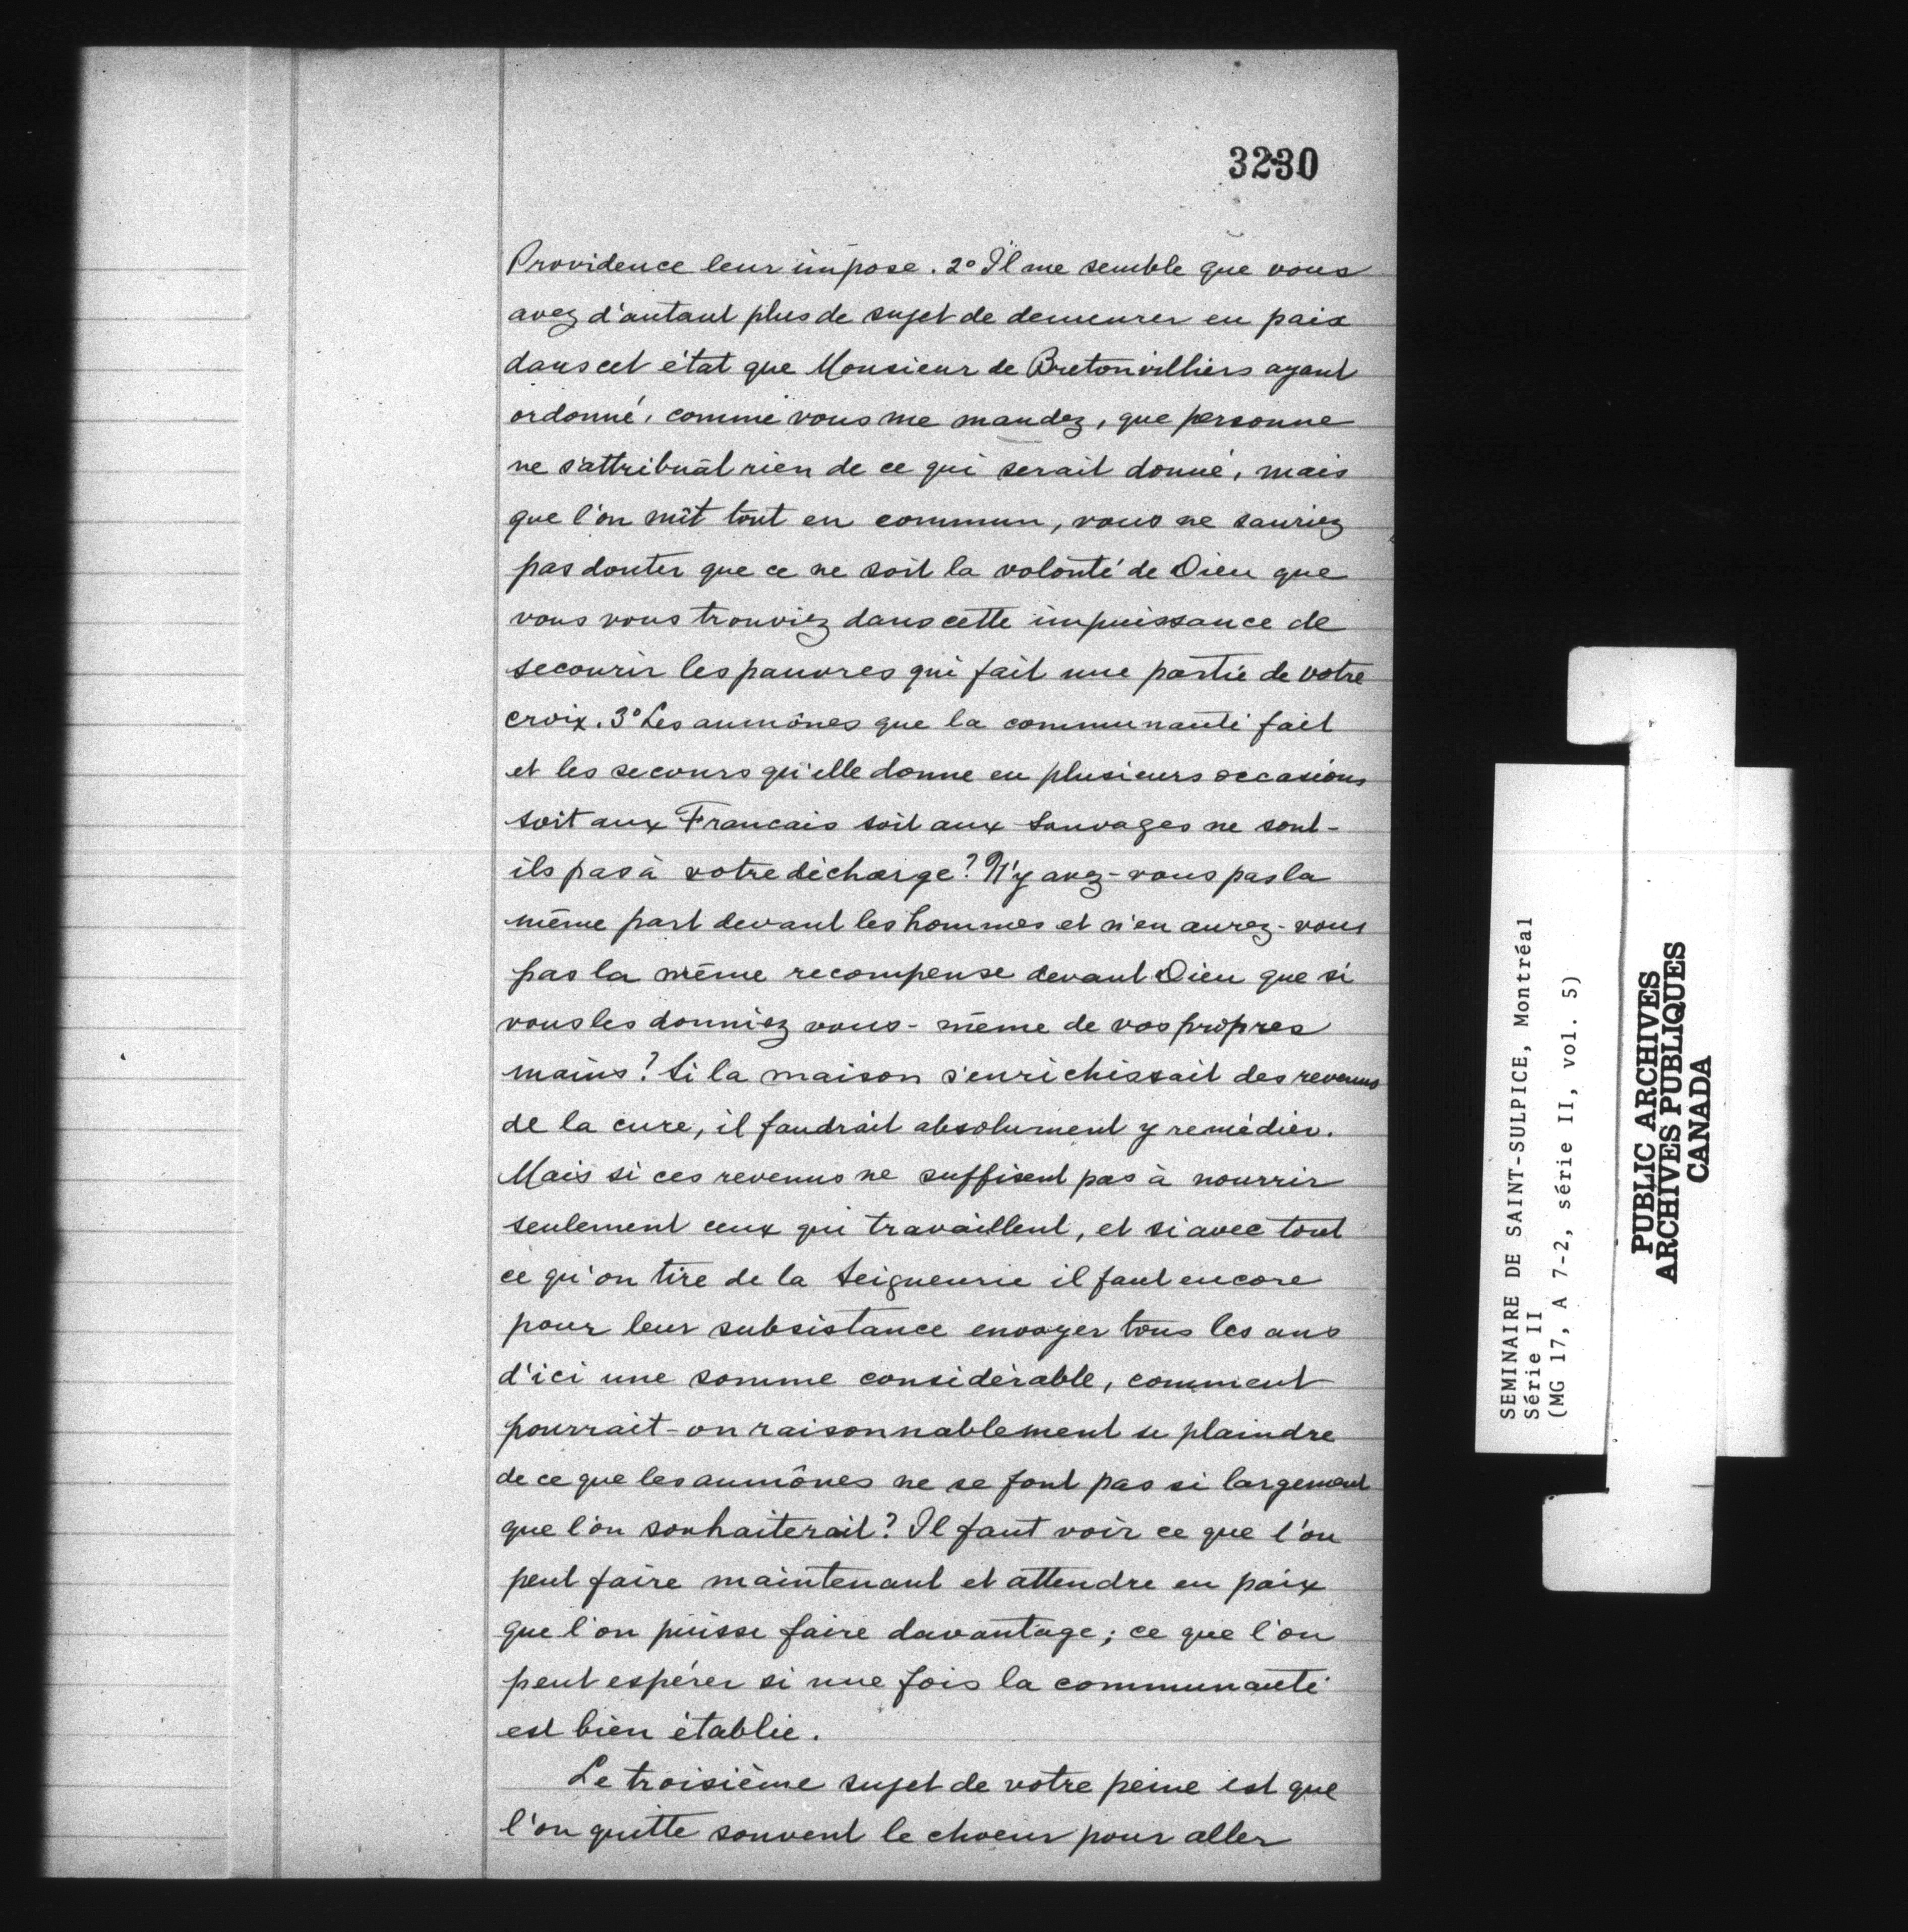 3230
Providence leur impose. 2° Il me semble que vous
avez d'autant plus de sujet de demeurer en paix
dans cet état que Monsieur de Bretonvilliers ayant
ordonné, comme vous me mandez, que personne
ne s'attribuât rien de ce qui serait donné, mais
que l'on mît tout en commun, vous ne sauriez
pas douter que ce ne soit la volonté de Dieu que
vous vous trouviez dans cette impuissance de
secourir les pauvres qui fait une partie de votre
croix. 3° Les aumônes que la communauté fait
et les secours qu'elle donne en plusieurs occasions
soit aux Francais soit aux Sauvages ne sont-
ils pas à votre décharge? N'y avez-vous pas la
même part devant les hommes et n'en aurez-vous
pas la même recompense devant Dieu que si
vous les donniez vous-même de vos propres
mains? Si la maison s'enrichissait des revenus
de la cure, il faudrait absolument y remédier.
Mais si ces revenus ne suffisent pas à nourrir
seulement ceux qui travaillent, et si avec tout
ce qu'on tire de la Seigneurie il faut encore
pour leur subsistance envoyer tous les ans
d'ici une somme considérable, comment
pourrait-on raisonnablement se plaindre
de ce que les aumônes ne se font pas si largement
que l'on souhaiterait? Il faut voir ce que l'on
peut faire maintenant et attendre en paix
que l'on puisse faire davantage; ce que l'on
peut espérer si une fois la communauté
est bien établie.
Le troisième sujet de votre peine est que
l'on quitte souvent le choeur pour aller
SEMINAIRE DE SAINT-SULPICE, Montréal
Série II
(MG 17, A 7-2, série II, vol. 5)
PUBLIC ARCHIVES
ARCHIVES PUBLIQUES
CANADA